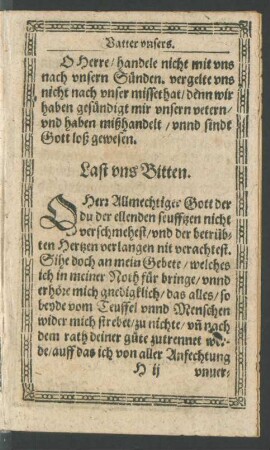 Vatter vnsers.
O Herre/ handele nicht mit vns
nach vnsern Sünden. vergelte vns
nicht nach vnser missethat/ denn wir
haben gesündigt mit vnsern vetern/
vnd haben mißhandelt/ vnnd sindt
Gott loß gewesen.
Last vns Bitten.
O Herr Allmechtiger Gott der
du der ellenden seufftzen nicht
verschmehest/ vnd der betrüb-
ten Hertzen verlangen nit verachtest.
Sihe doch an mein Gebete/ welches
ich in meiner Noth für bringe/ vnnd
erhöre mich gnedigklich/ das alles/ so
beyde vom Teuffel vnnd Menschen
wider mich strebet/ zu nichte/ vñ nach
dem rath deiner güte zutrennet wer-
de/ auff das ich von aller Anfechtung
H ij vnuer-